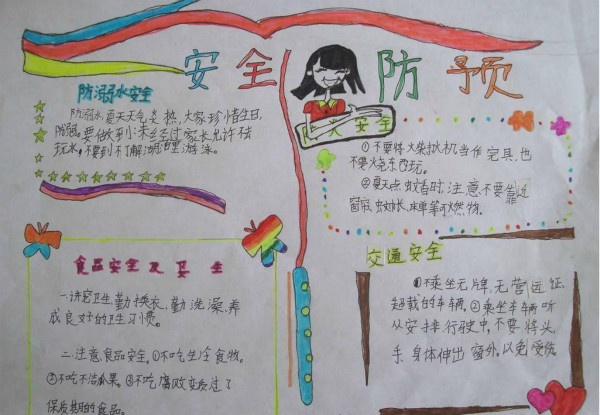 安全防预
防溺水安全
防溺水,夏天天气炎热,大家珍惜生日,
防溺。要做到:未经过家长允许去
玩水,不要到不了解湖里游泳。
食品安全及卫生
一.讲究卫生,勤换衣,勤洗澡,养
成良好的卫生习惯。
二.注意食品安全。①不吃生冷食物。
②不吃不洁瓜果。③不吃腐败变质过了
保质期的食品。
防火安全
①不要将火柴、打火机当作完具,也
不要烧东西玩。
②夏天点蚊香时,注意不要靠近
窗帘、蚊帐、床单等可燃物。
交通安全
①不乘坐无牌,无营运证,
超载的车辆。②乘坐车辆听
从安排行驶中,不要将头、
手、身体伸出窗外,以免受伤